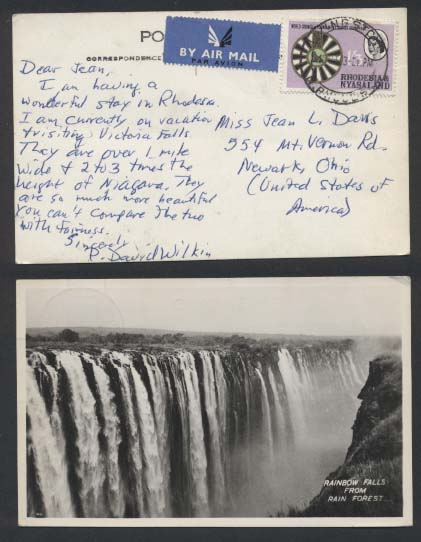 PO
CORRESPONDENCE
BY AIR MAIL
PAR AVION
1/3
RHODESIA &
NYASALAND
Dear Jean,
I am having a
wonderful stay in Rhodesia.
I am currently on vacation
& visiting Victoria Falls
They are over 1 mile
wide & 2 to 3 times the
height of Niagara. They
are so much more beautiful
You can't compare the two
with fairness.
Sincerely,
P. David Wilkin
Miss Jean L. Davis
554 Mt. Vernon Rd.
Newark, Ohio
(United States of
America)
RAINBOW FALLS
FROM
RAIN FOREST